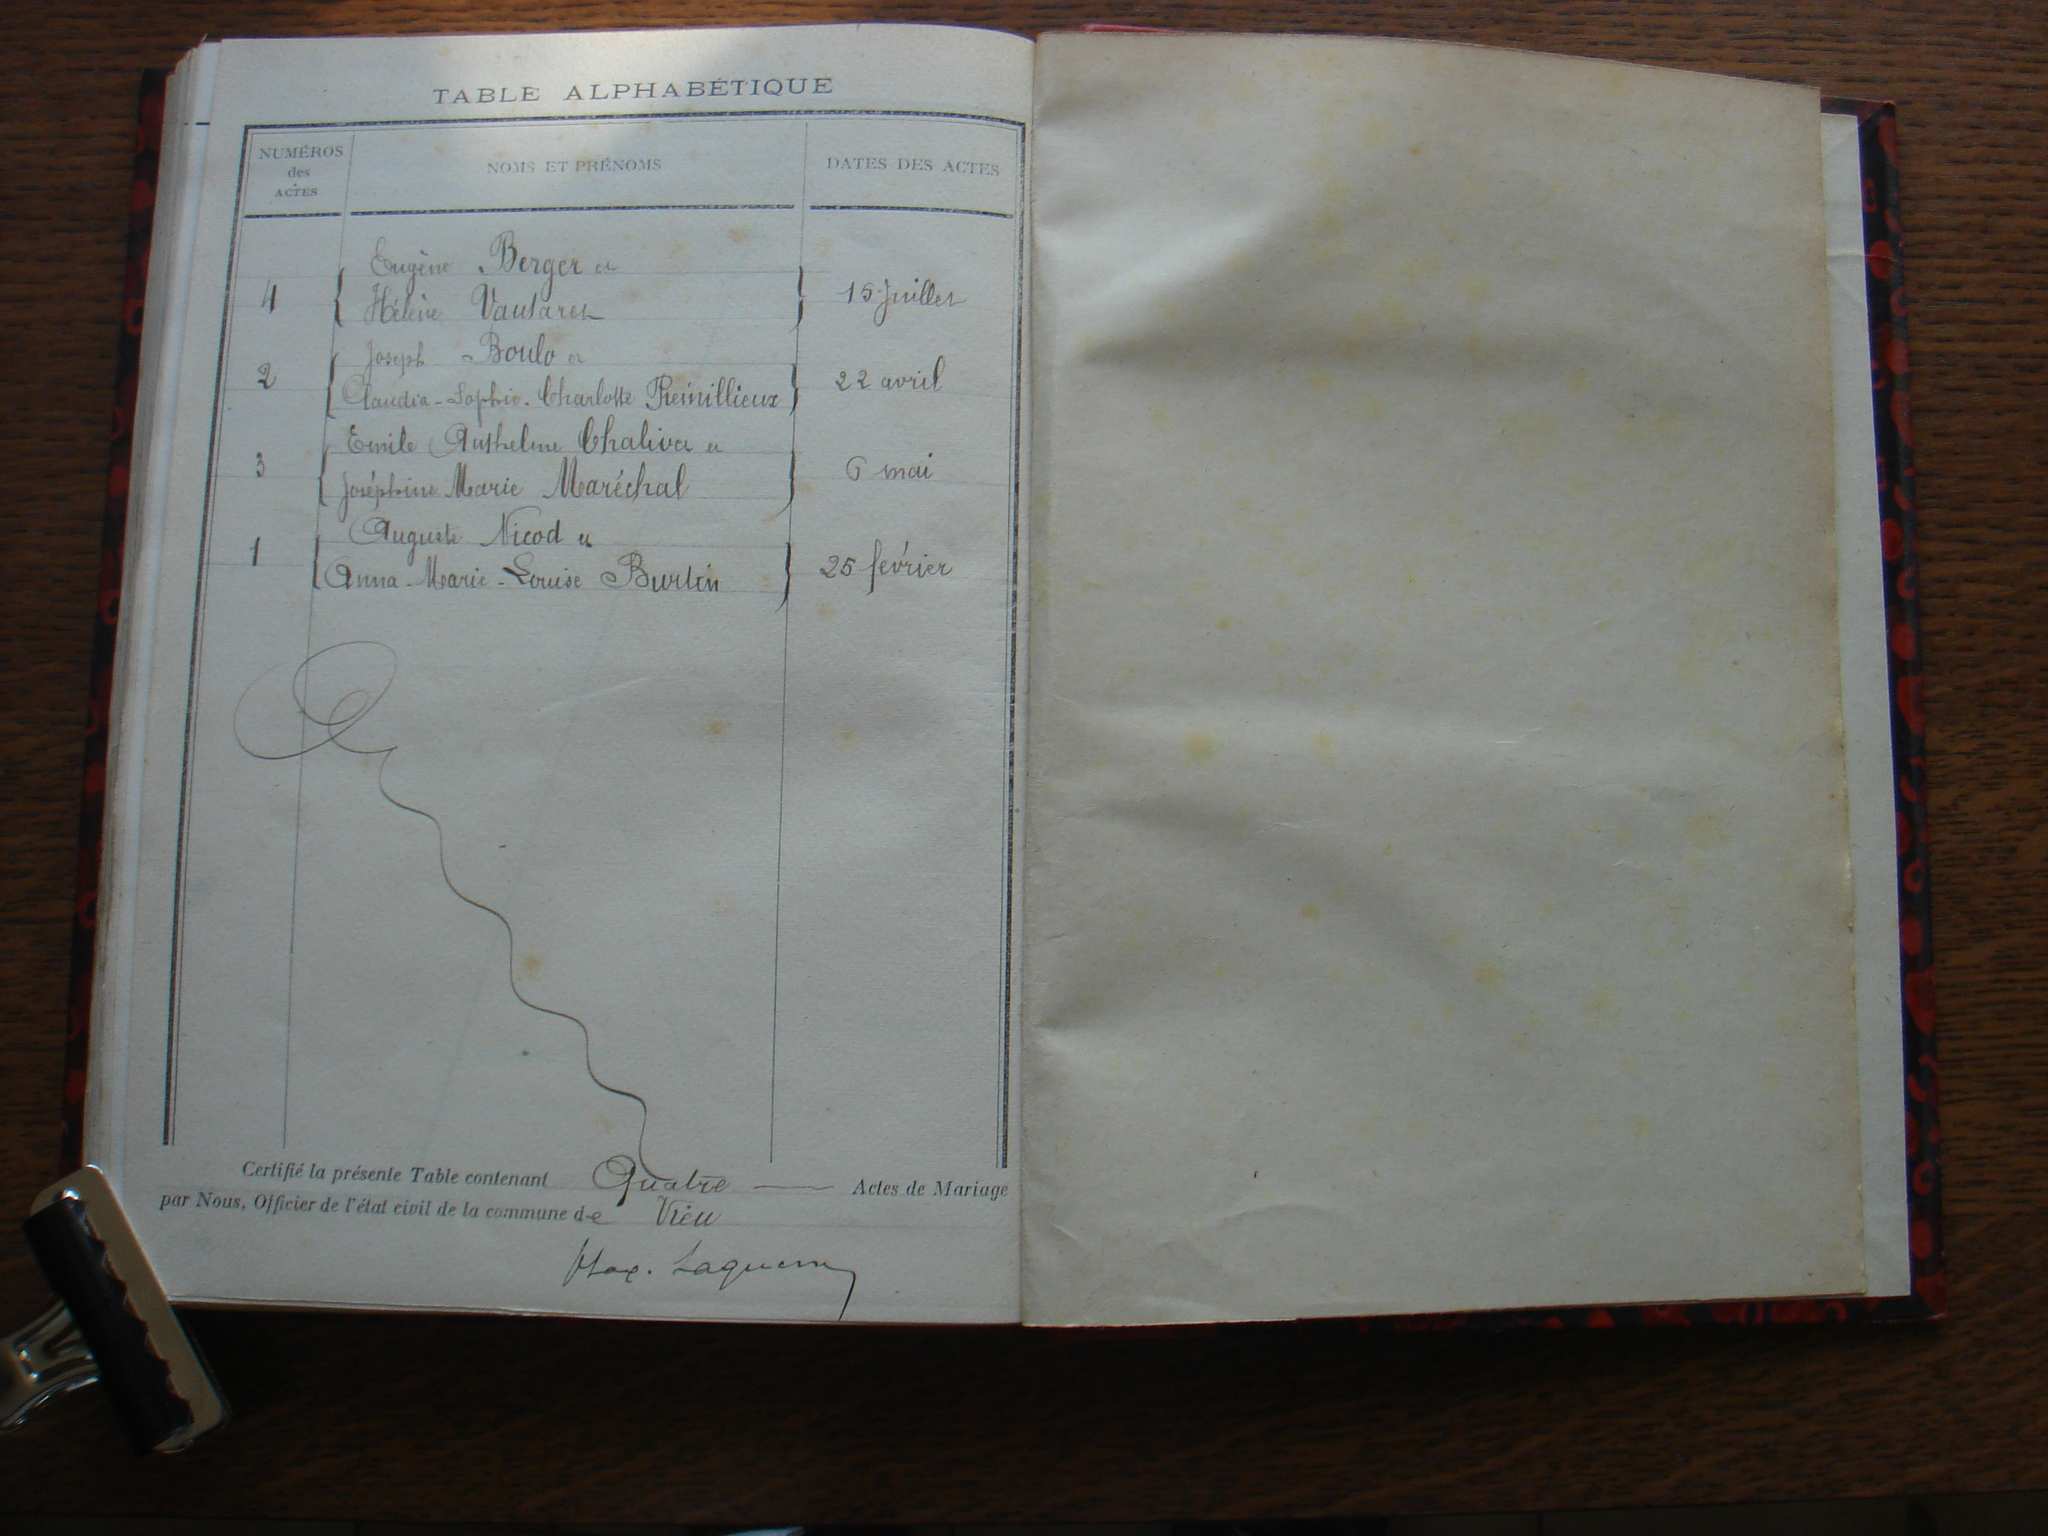 TABLE ALPHABÉTIQUE
NUMÉROS des ACTES
NOMS ET PRÉNOMS
DATES DES ACTES
Eugène Berger et
4 Hélène Vautaret 15 Juillet
Joseph Boulo et
2 Claudia-Sophie-Charlotte Prémillieux 22 avril
Emile Anthelme Chalivet et
3 Joséphine Marie Maréchal 6 mai
Auguste Nicod et
1 Anna-Marie-Louise Burtin 25 février
Certifié la présente Table contenant Quatre Actes de Mariage
par Nous, Officier de l'état civil de la commune de Vieu